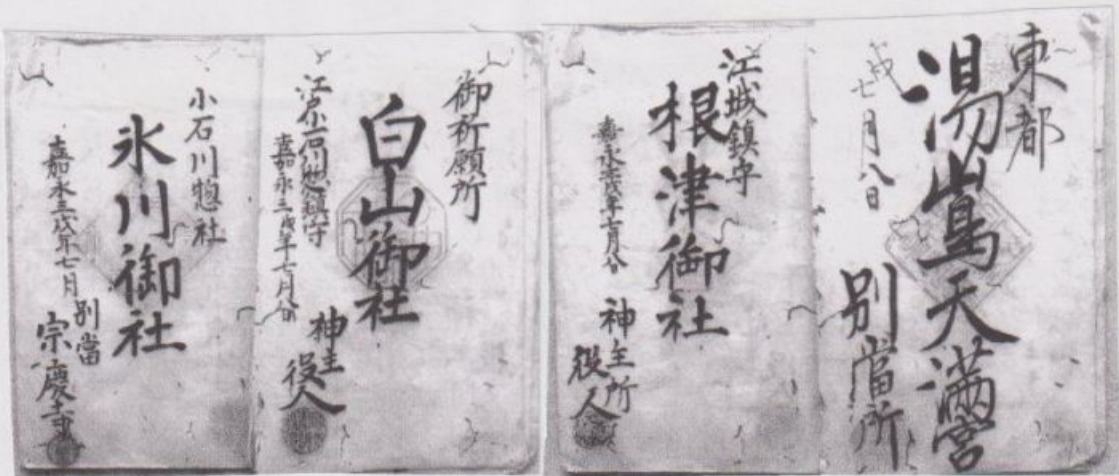 東都
湯嶌天満宮
戌七月八日
別當所
江城鎮守
根津御社
嘉永三戌年七月分
神主所
役人
御祈願所
白山御社
江戸小石川惣鎮守
嘉永三戌年七月分
神主
役人
小石川惣社
氷川御社
嘉永三戌年七月
別當
宗慶寺